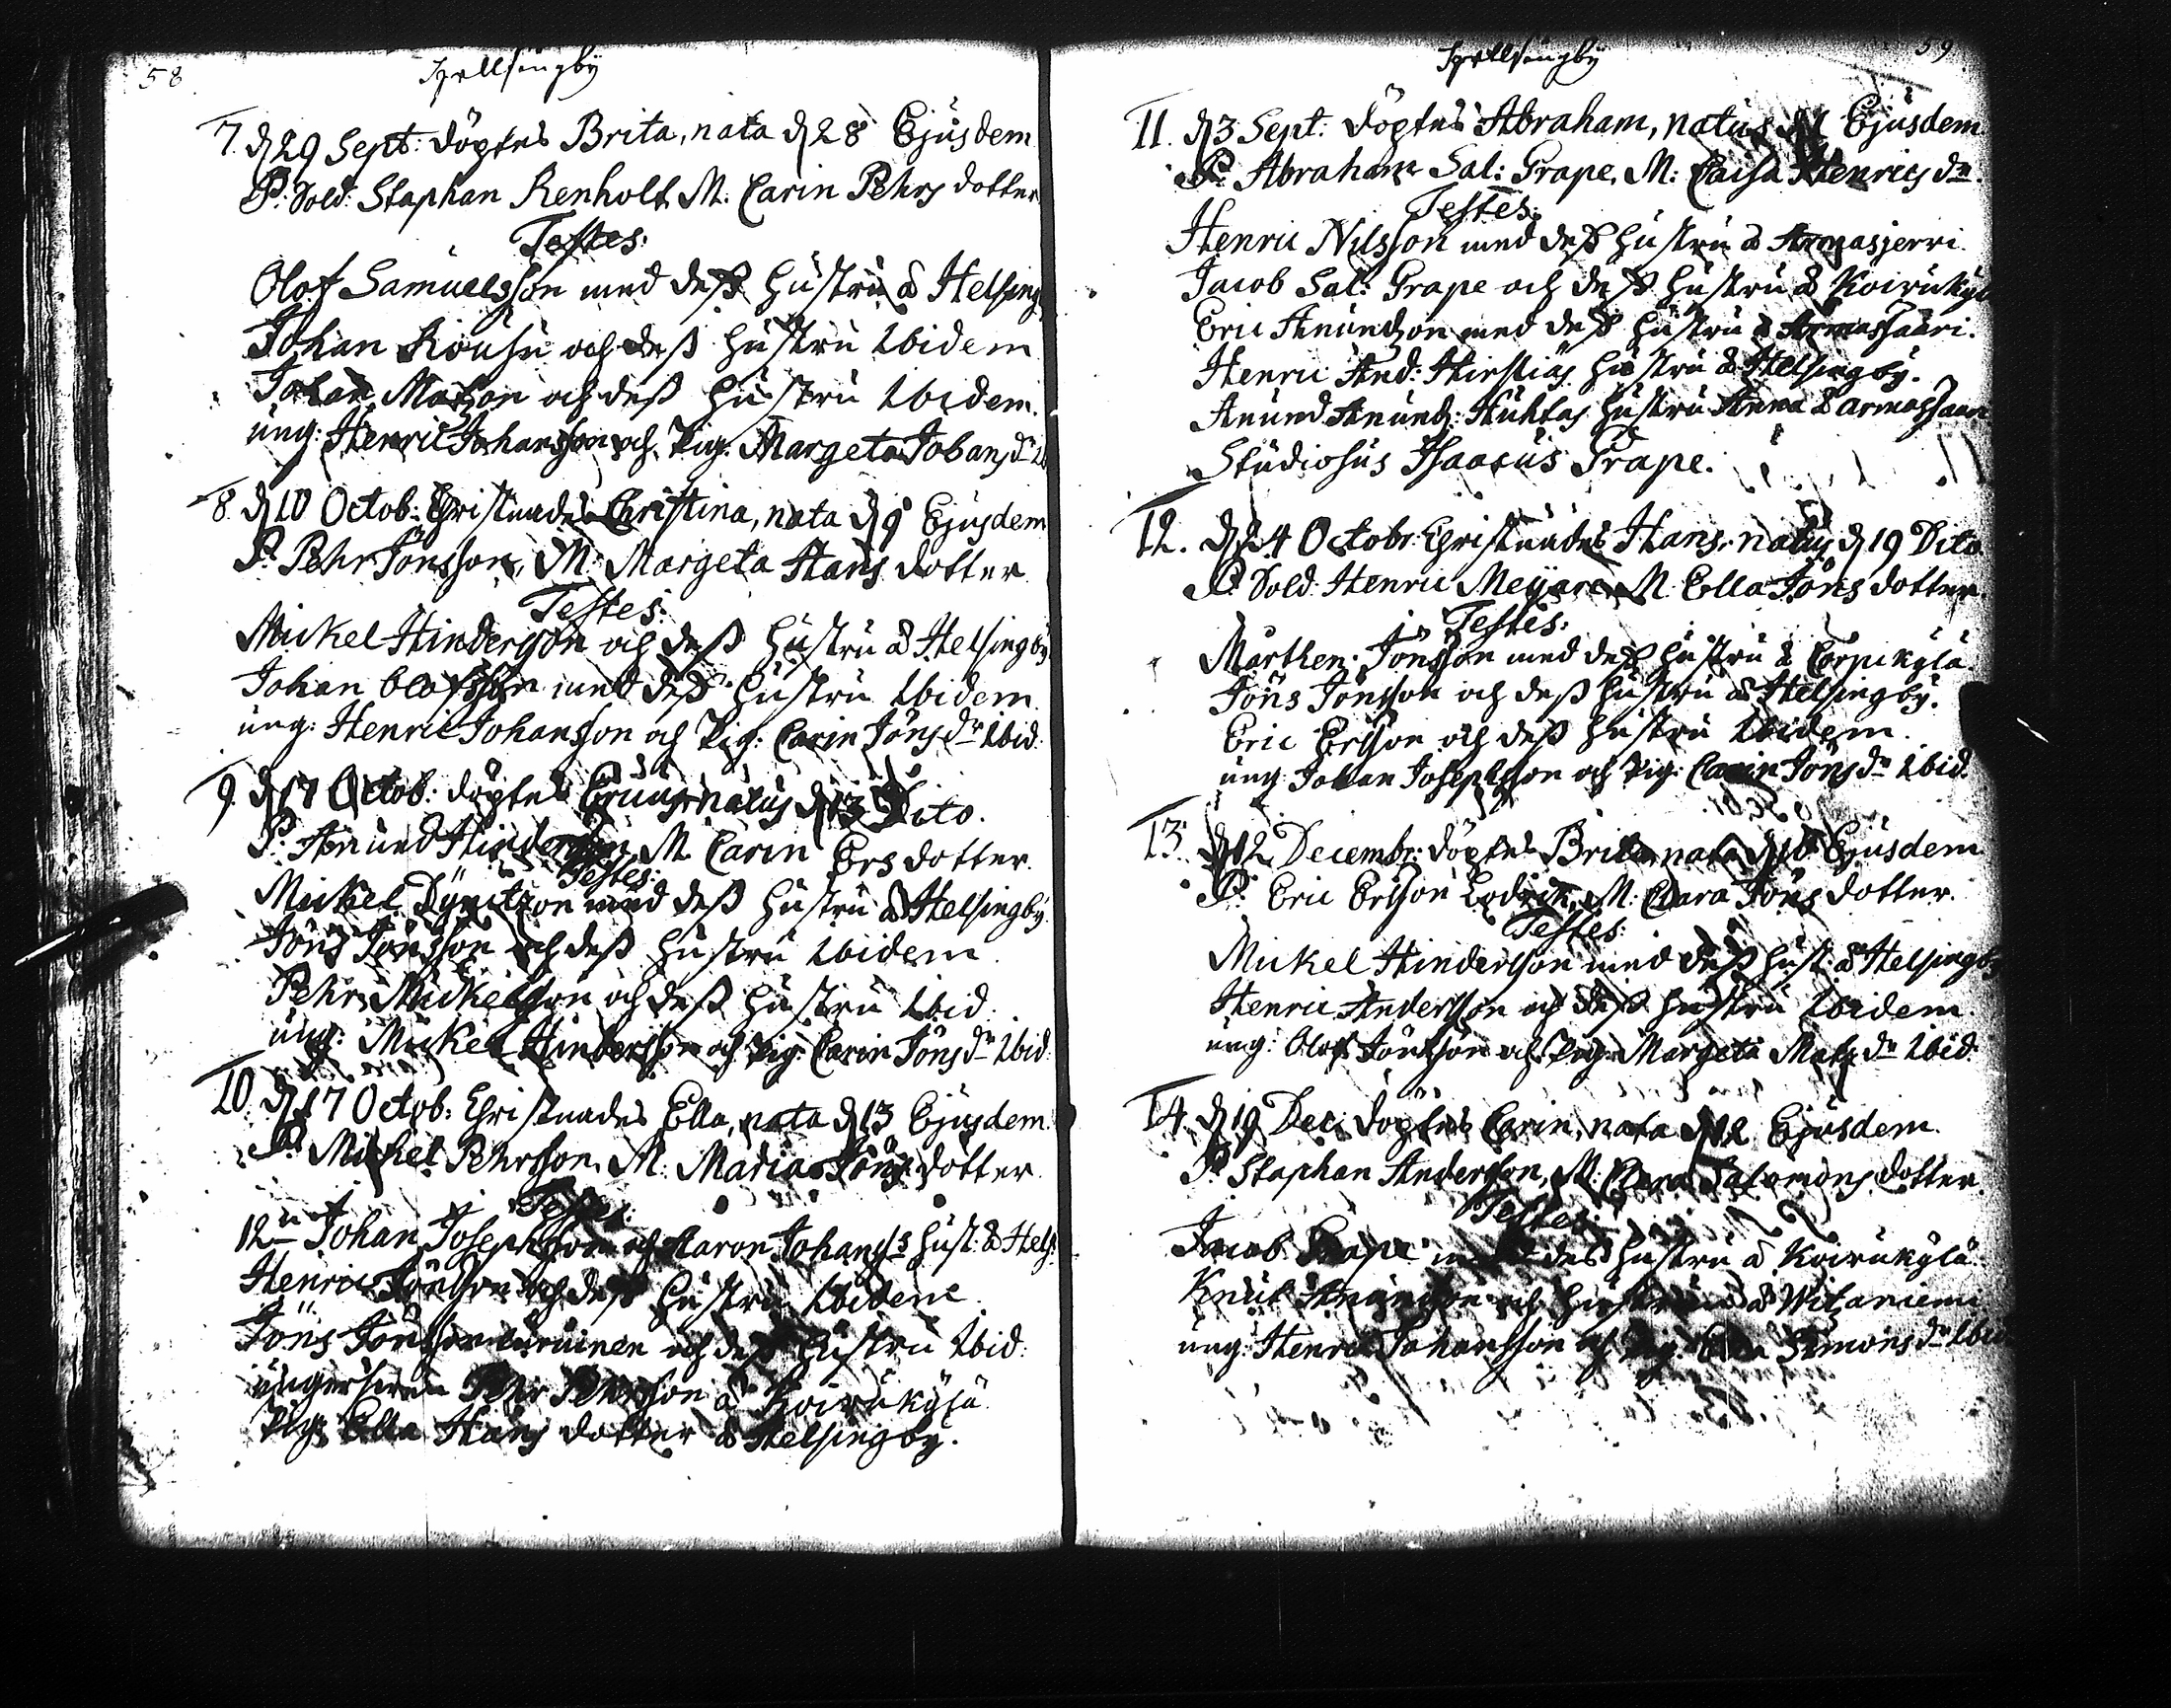 58
Hellsingby
7. d 29 Sept: döptes Brita, nata d 28 Ejusdem
P: Sold: Staphan Renholt M: Carin Pehrs dotter
Testes:
Olof Samuelsson med dess hustru å Helsing
Johan Kouhu och dess hustru Ibidem
Johan Matson och dess hustru Ibidem.
ung: Henric Johansson och Pig: Margeta Johans dr
8. d 10 Octob: Christnades Christina, nata d 9 Ejusdem
P: Pehr Jönsson, M: Margeta Hans dotter
Testes:
Mickel Hindersson och dess hustru å Helsingby
Johan Olofsson med dess hustru Ibidem
ung: Henric Johansson och Pig: Carin Jöns dr Ibid:
9. d 17 Octob: döptes natus d 13 Dito.
P: Anund Hindersson M. Carin Ers dotter.
Testes:
Mickel med dess hustru å Helsingby.
Jöns Jönsson och dess hustru Ibidem
Pehr Mickelsson och dess hustru Ibid
ung: Mickel Hindersson och Pig: Carin Jöns dr Ibid:
10. d 17 Octob: Christnades Ella, nata d 13 Ejusdem
P: Mickel Pehrsson. M: Maria Jöns dotter
Testes:
Johan Josephsson och Aaron Johans hust: å Hels:
Henric Jönsson och dess hustru Ibidem
Jöns Jönsson och dess hustru Ibid:
Pehr Pehrsson å Koirukylä
Pig: Ella Hans dotter å Helsingby.
59
Hellsingby
11. d 3 Sept: döptes Abraham, natus d 1 Ejusdem
P: Abraham Sal: Grape, M: Caisa Henrics dr.
Testes:
Henric Nilsson med dess hustru å Armasjerri
Jacob Sal: Grape och dess hustru å Koirukyl
Eric Anundson med dess hustru å Armassaari.
Henric And: hustru å Helsingby.
Anund Anund: Huhtas hustru Anna å armassaari
Studiosus Isaacus Grape.
12. d 24 Octobr: Christnades Hans, natus d 19 Dito
P: Sold: Henric Meijare M: Ella Jöns dotter
Testes:
Marthen Jönsson med dess hustru å Corpikylä
Jöns Jönsson och dess hustru å Helsingby.
Eric Ersson och dess hustru Ibidem.
ung: Johan Josephsson och Pig: Carin Jöns dr Ibid:
13. d 12 Decembr: döptes Brita nata d 10 Ejusdem
P: Eric Ersson M: Clara Jöns dotter.
Testes:
Mickel Hindersson med dess hust: å Helsingby
Henric Andersson och dess hustru Ibidem
ung: Olof Jönsson och Pig: Margeta Mats dr Ibid:
14. d 19 Dec: döptes Carin, nata d 12 Ejusdem
P: Staphan Andersson, M: Clara Salomons dotter
Testes:
Jacob Grape med dess hustru å Koirukylä
Knut Anundson och hustrun å Witaniemi
ung: Henric Johansson och Pig: Simons dr Ibid